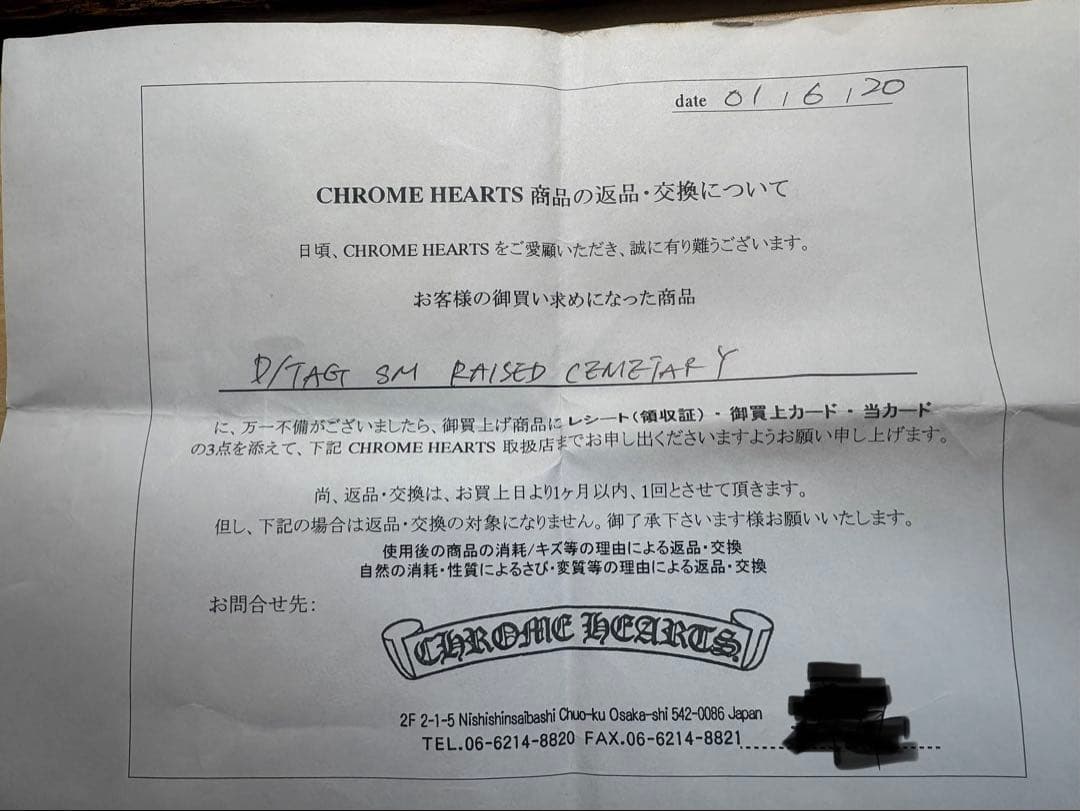 date 01,6,20
CHROME HEARTS 商品の返品・交換について
日頃、CHROME HEARTS をご愛顧いただき、誠に有り難うございます。
お客様の御買い求めになった商品
D/TAG SM RAISED CEMETARY
に、万一不備がございましたら、御買上げ商品にレシート(領収証)・御買上カード・当カード
の3点を添えて、下記 CHROME HEARTS 取扱店までお申し出くださいますようお願い申し上げます。
尚、返品・交換は、お買上日より1ヶ月以内、1回とさせて頂きます。
但し、下記の場合は返品・交換の対象になりません。御了承下さいます様お願いいたします。
使用後の商品の消耗/キズ等の理由による返品・交換
自然の消耗・性質によるさび・変質等の理由による返品・交換
お問合せ先:
CHROME HEARTS
2F 2-1-5 Nishishinsaibashi Chuo-ku Osaka-shi 542-0086 Japan
TEL.06-6214-8820 FAX.06-6214-8821